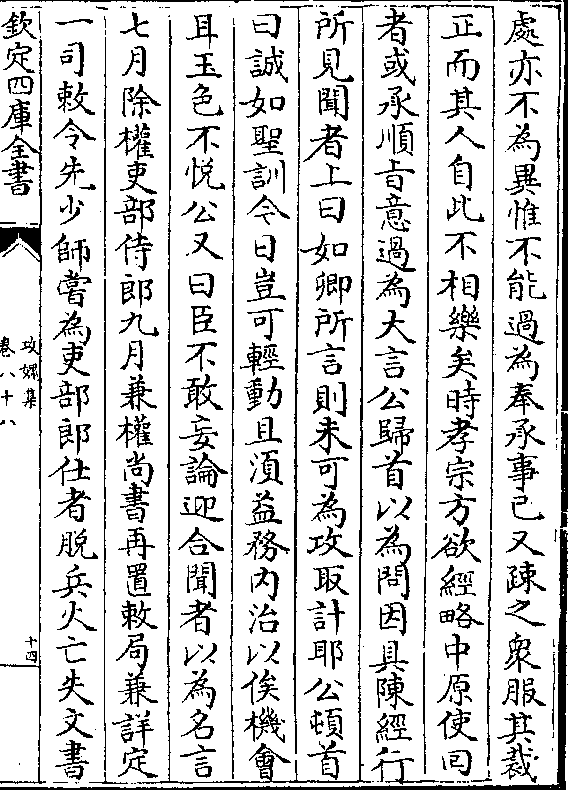 處亦不為異惟不能過為奉承事已又疎之衆服其裁
正而其人自此不相樂矣時孝宗方欲經略中原使回
者或承順㫖意過為大言公歸首以為問因具陳經行
所見聞者上曰如卿所言則未可為攻取計耶公頓首
曰誠如聖訓今日豈可輕動且湏益務内治以俟機會
耳玉色不悦公又曰臣不敢妄論迎合聞者以為名言
七月除權吏部侍郎九月兼權尚書再置敕局兼詳定
一司敕令先少師嘗為吏部郎仕者脱兵火亡失文書
欽定四庫全書
攻媿集
卷八十八
十四